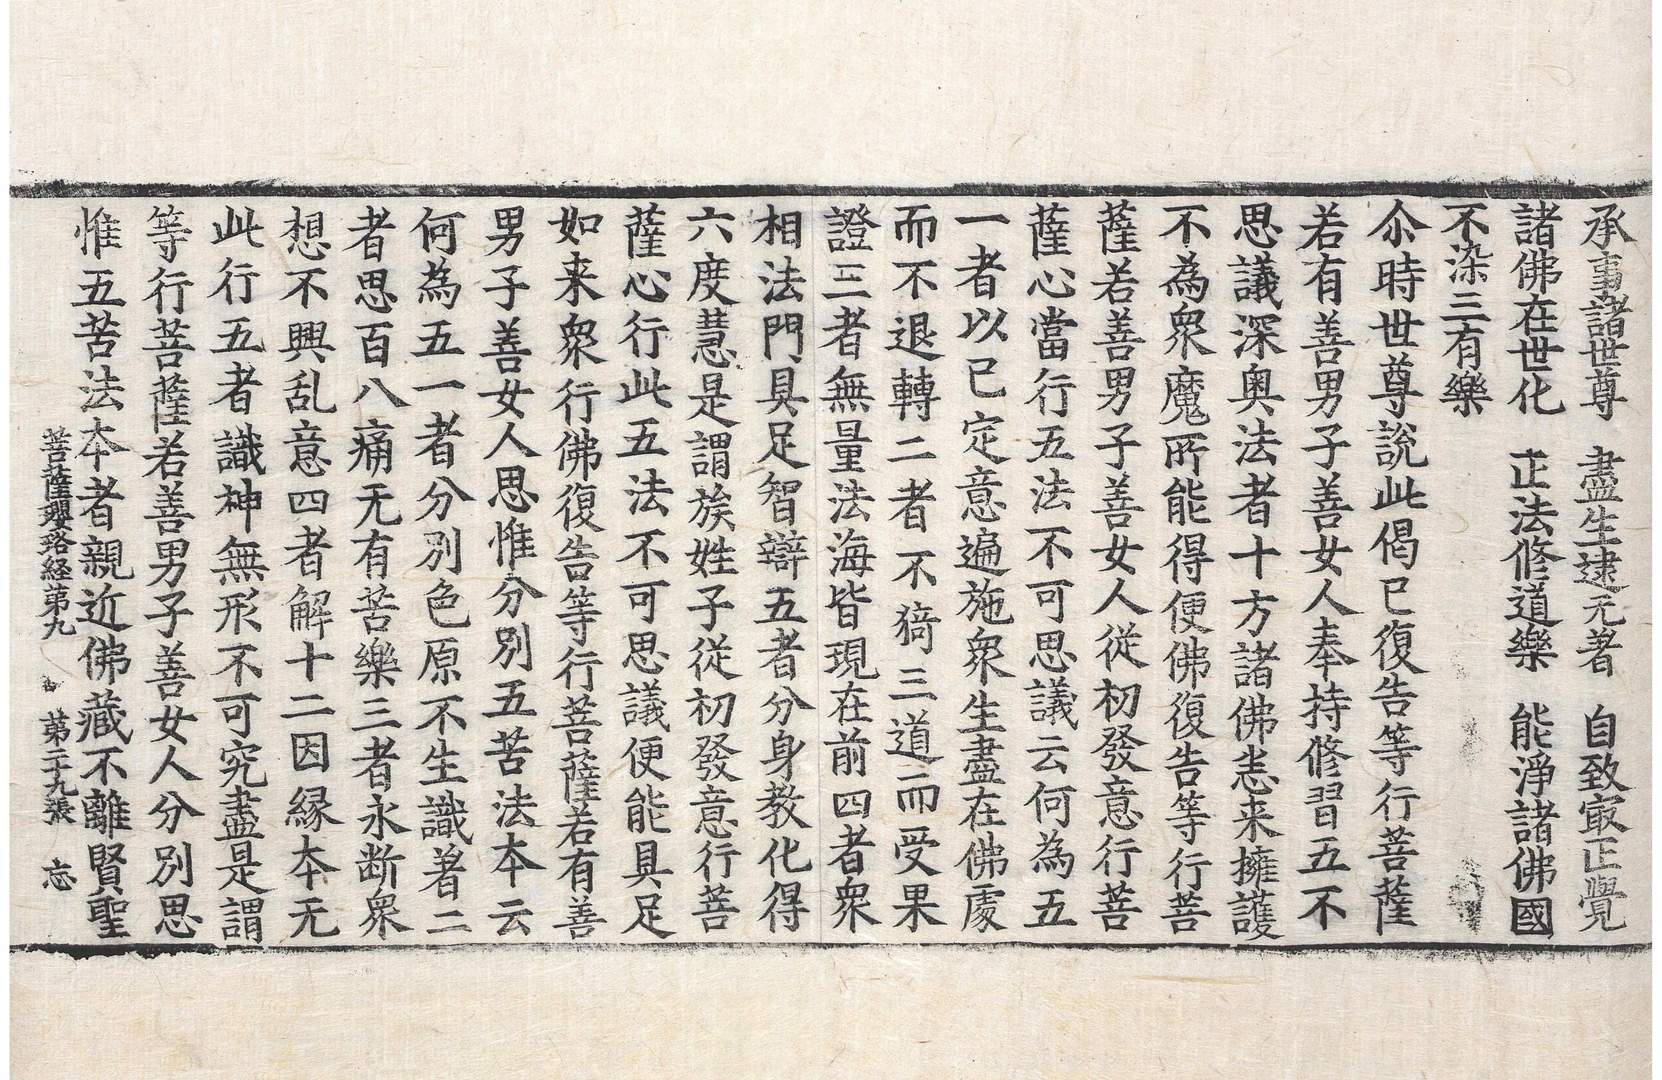 承事諸世尊 盡生逮无著 自致㝡正覺
諸佛在世化 正法修道樂 能淨諸佛國
不染三有樂
尒時世尊說此偈已復告等行菩薩
若有善男子善女人奉持修習五不
思議深奧法者十方諸佛悉来擁護
不為衆魔所能得便佛復告等行菩
薩若善男子善女人從初發意行菩
薩心當行五法不可思議云何為五
一者以已定意遍施衆生盡在佛處
而不退轉二者不猗三道而受果
證三者無量法海皆現在前四者衆
相法門具足智辯五者分身教化得
六度慧是謂族姓子從初發意行菩
薩心行此五法不可思議便能具足
如来衆行佛復告等行菩薩若有善
男子善女人思惟分別五苦法本云
何為五一者分別色原不生識著二
者思百八痛无有苦樂三者永断衆
想不興乱意四者解十二因緣本无
此行五者識神無形不可究盡是謂
等行菩薩若善男子善女人分別思
惟五苦法本者親近佛藏不離賢聖
菩薩瓔珞経第九 第二十九張 忘